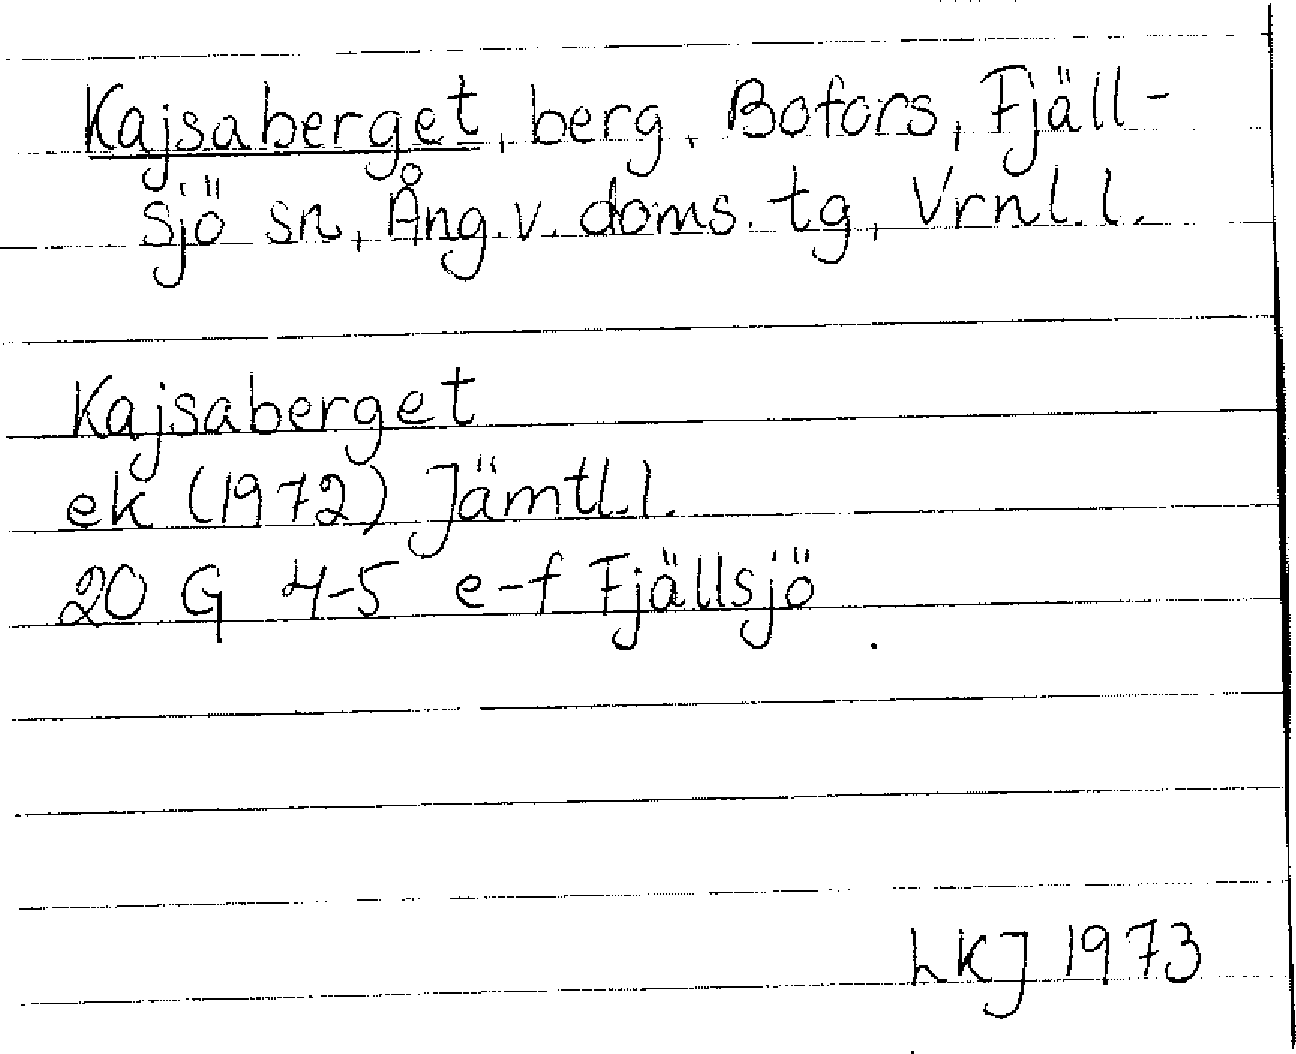 Kajsaberget, berg. Bofors, Fjäll-
sjö sn, Ång.v. doms. tg, Vrnl.l.
Kajsaberget
ek (1972) Jämtl.l.
20 G 4-5 e-f Fjällsjö
LKJ 1973